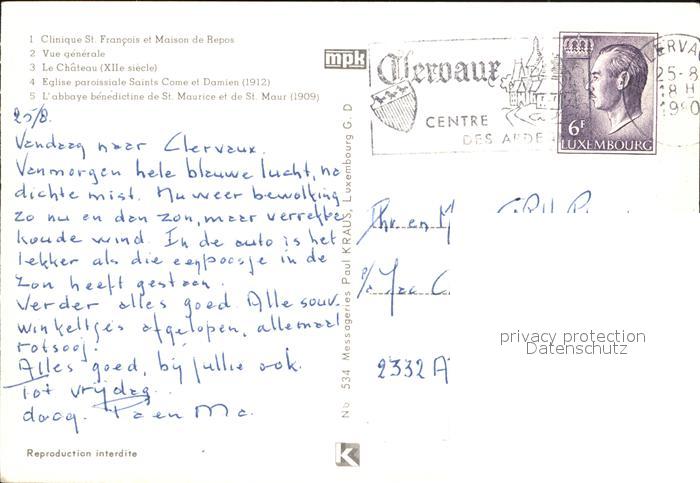 1 Clinique St. François et Maison de Repos
2 Vue générale
3 Le Château (XIIe siècle)
4 Eglise paroissiale Saints Come et Damien (1912)
5 L'abbaye bénédictine de St. Maurice et de St. Maur (1909)
25/8.
Vandaag naar Clervaux.
Vanmorgen hele blauwe lucht, na
dichte mist. Nu weer bewolking
zo nu en dan zon, maar verrekte
koude wind. In de auto is het
lekker als die een poosje in de
zon heeft gestaan.
Verder alles goed. Alle souv.
winkeltjes afgelopen, allemaal
rotsooi.
Alles goed, bij jullie ook.
Tot vrijdag.
daag. Pa en Ma.
Reproduction interdite
mpk
No. 534 Messageries Paul KRAUS, Luxembourg G. D
K
Clervaux
CENTRE
DES ARDE
ERVA
25-8
18 H
1990
6F
LUXEMBOURG
2332 A
privacy protection
Datenschutz